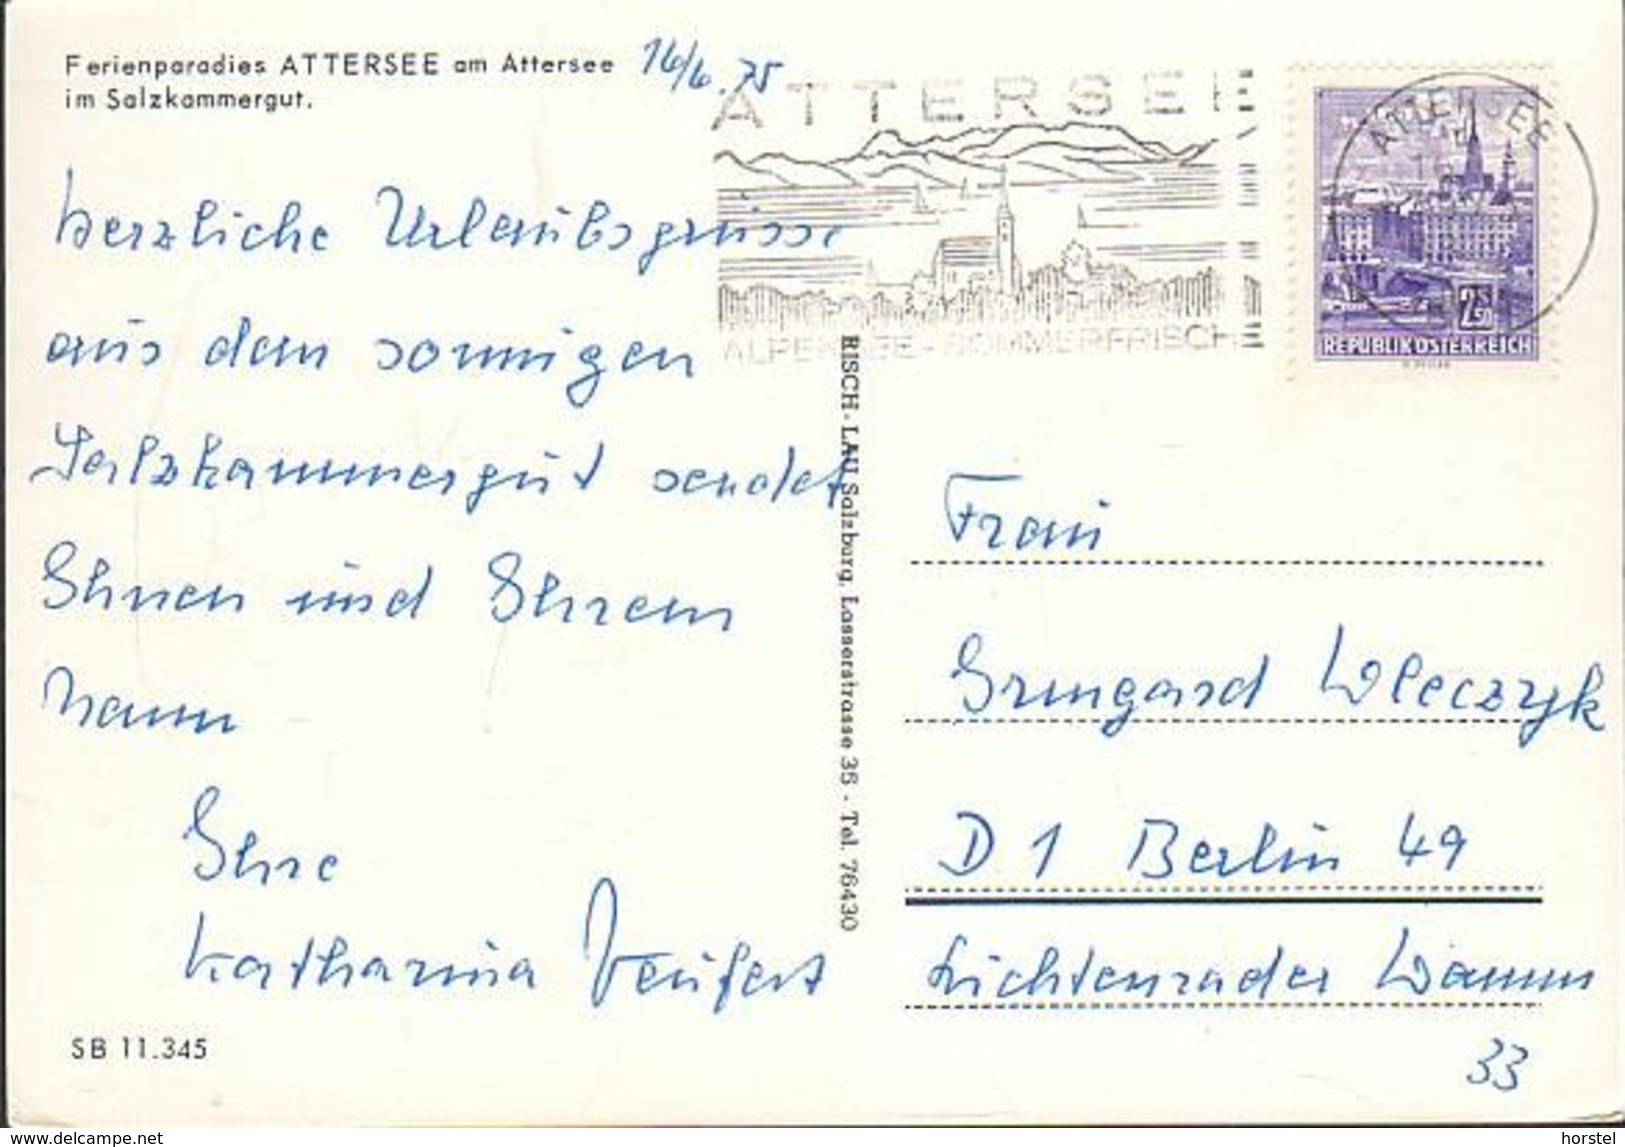 Ferienparadies ATTERSEE am Attersee
im Salzkammergut.
16/6.75
herzliche Urlaubsgrüsse
aus dem sonnigen
Salzkammergut sendet
Ihnen und Ihrem
Mann
Ihre
Katharina
SB 11.345
RISCH-LAU Salzburg, Lasserstrasse 35 - Tel. 76430
ATTERSEE
ALPENSEE-SOMMERFRISCHE
ATTERSEE
2.50
REPUBLIK ÖSTERREICH
Frau
Irmgard Wleczyk
D 1 Berlin 49
Lichtenrader Damm
33
www.delcampe.net
horstel